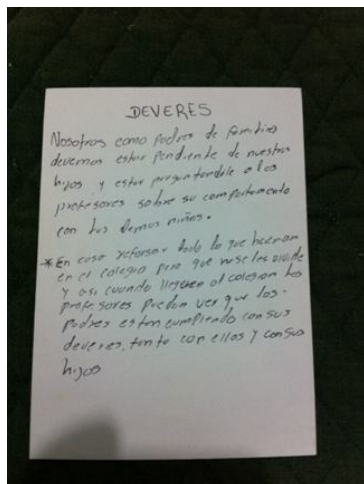 DEVERES
Nosotros como padres de familias
devemos estar pendiente de nuestros
hijos y estar preguntandole a los
profesores sobre su comportamento
con los demas niños.
*En casa reforsar todo lo que hicieron
en el colegio para que nose les olvide
y asi cuando lleguen al colegio los
profesores puedan ver que los
padres estan cumpliendo con sus
deveres, tanto con ellos y con sus
hijos